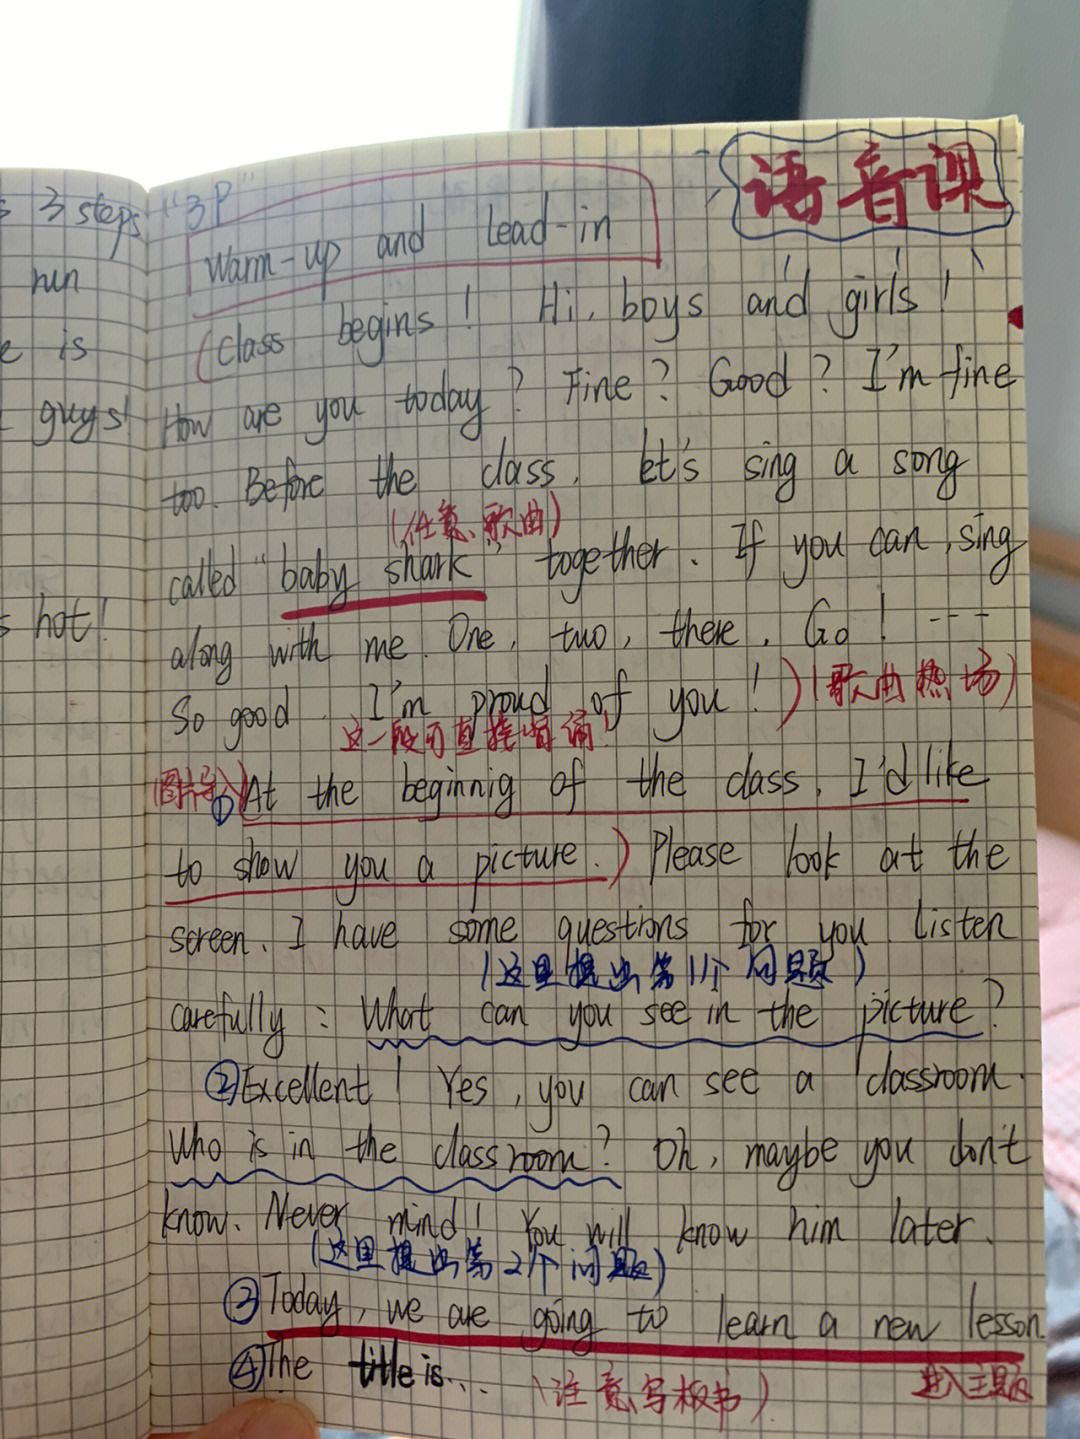 语音课
3 steps
"3P"
Warm-up and Lead-in
run
(Class begins! Hi, boys and girls!
is
How are you today? Fine? Good? I'm fine
guys!
too. Before the class, let's sing a song
(任意歌曲)
called "baby shark" together. If you can, sing
hot!
along with me. One, two, there, Go! ---
So good. I'm proud of you!) (歌曲热场)
这一段可直接背诵!
(图片导入) ①At the beginnig of the class, I'd like
to show you a picture.) Please look at the
screen. I have some questions for you. Listen
(这里提出第1个问题)
carefully: What can you see in the picture?
②Excellent! Yes, you can see a classroom.
Who is in the classroom? Oh, maybe you don't
know. Never mind! You will know him later.
(这里提出第2个问题)
③Today, we are going to learn a new lesson.
④The title is... (注意写板书) 进入主题